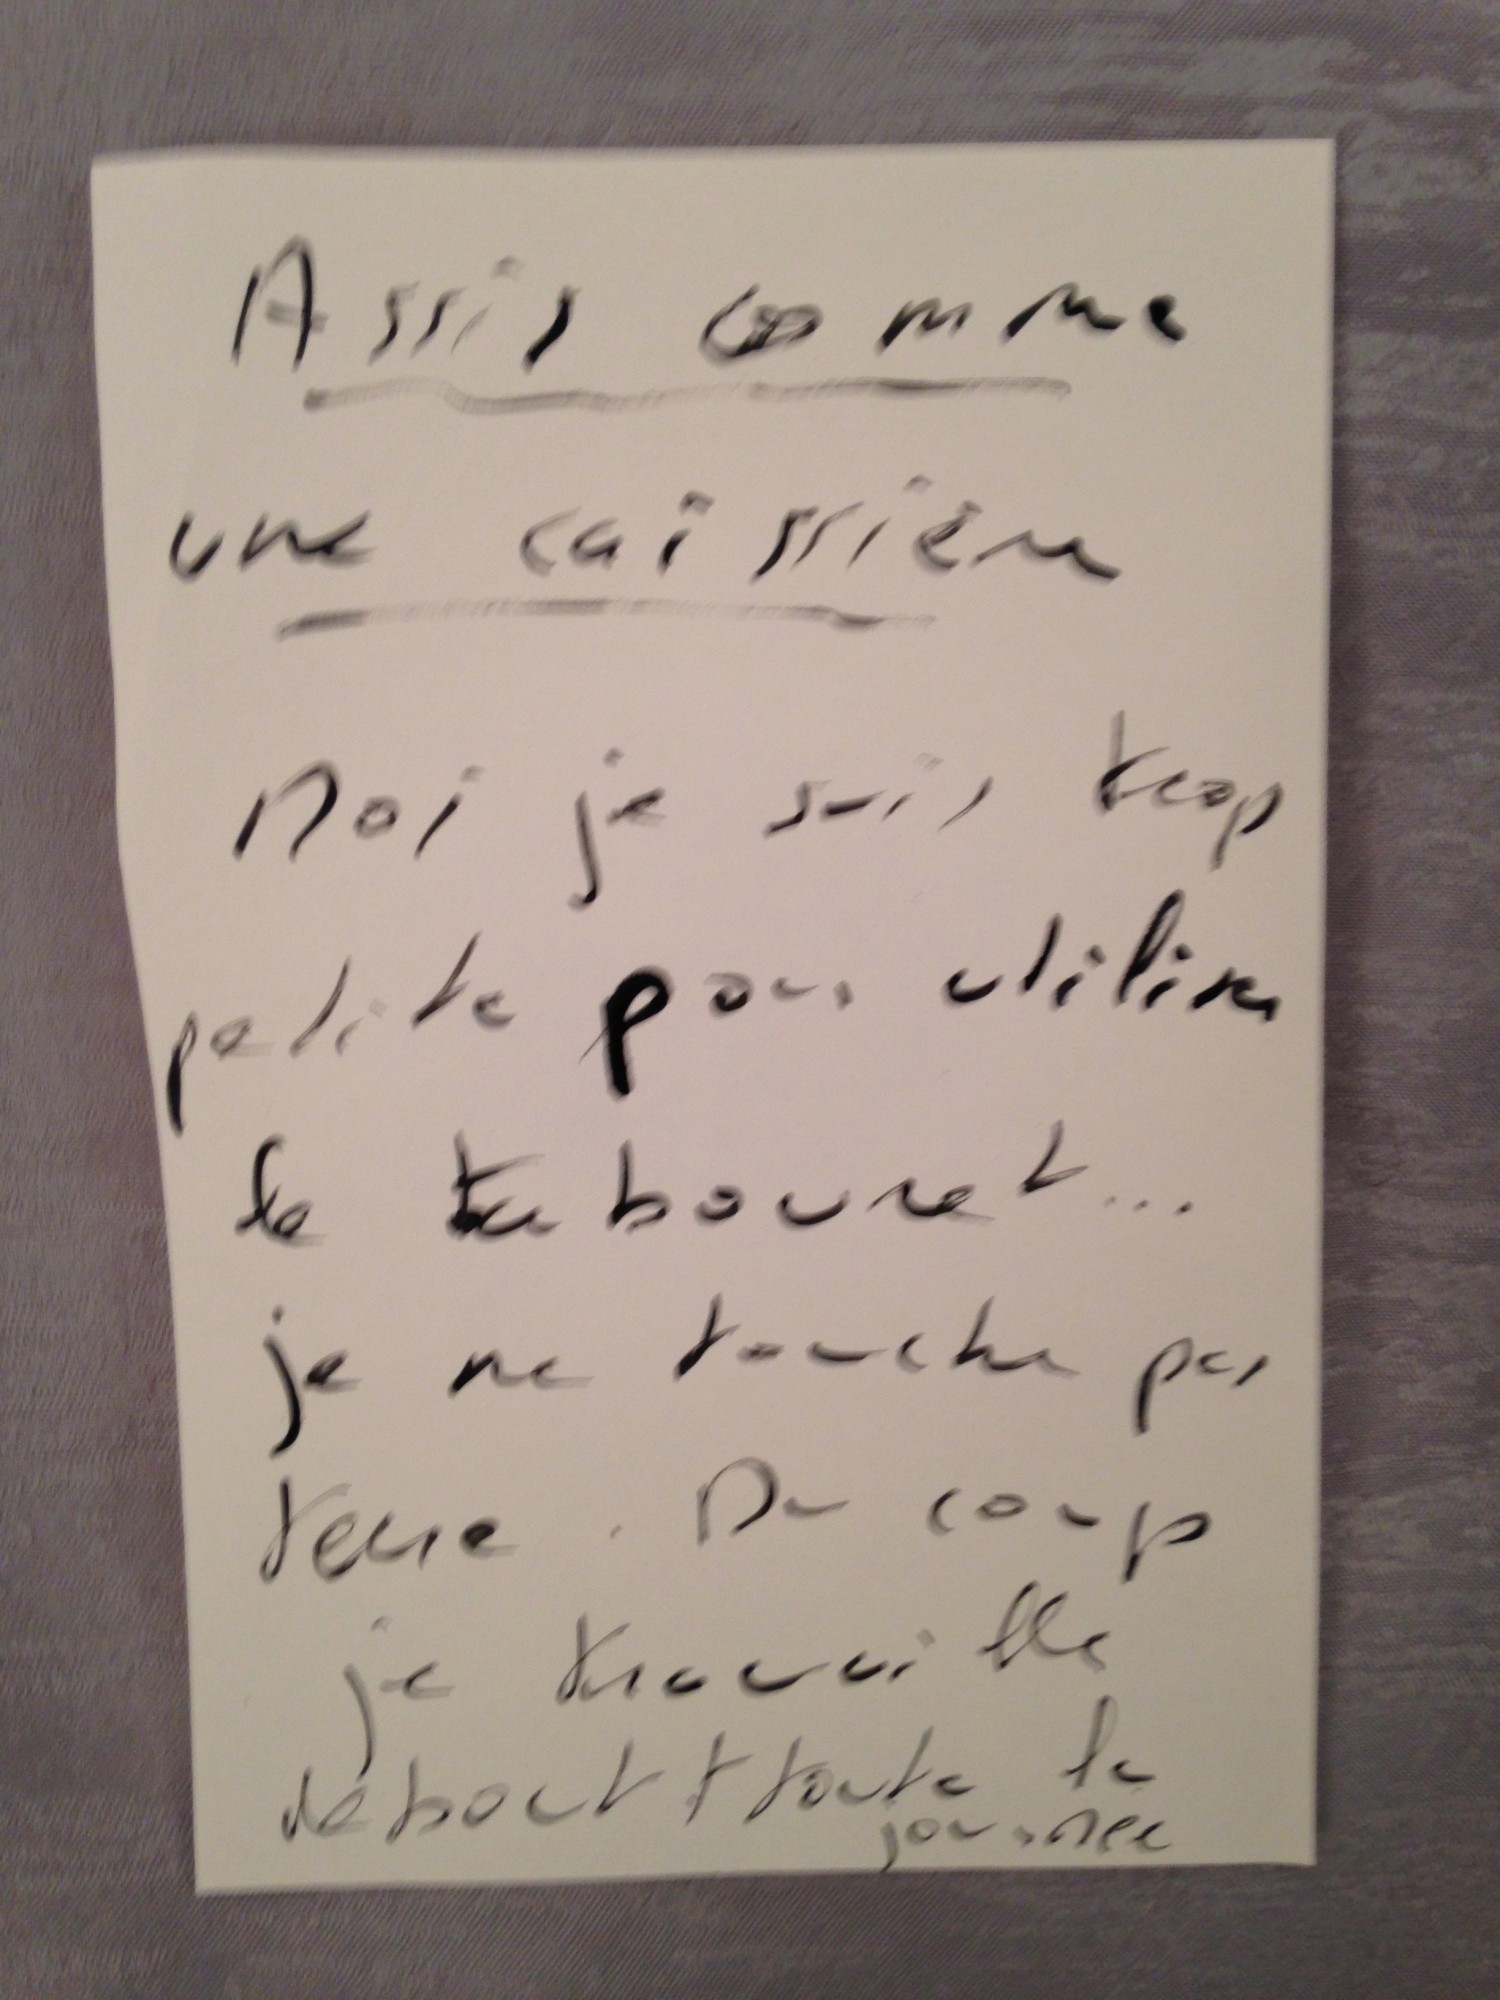 Assis comme
une caissière
Moi je suis trop
petite pour utiliser
le tabouret...
je ne touche pas
terre. Du coup
je travaille
debout toute la
journée